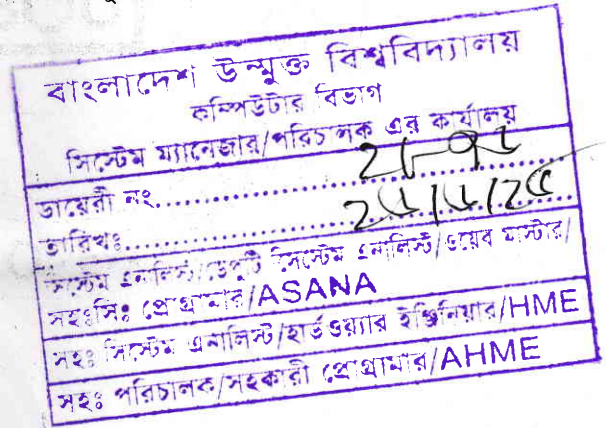 বাংলাদেশ উন্মুক্ত বিশ্ববিদ্যালয়
কম্পিউটার বিভাগ
সিস্টেম ম্যানেজার/পরিচালক এর কার্যালয়
ডায়েরী নং..............................
তারিখঃ..............................
সিস্টেম এনালিস্ট/ডেপুটি সিস্টেম এনালিস্ট/ওয়েব মাস্টার/
সহঃসিঃ প্রোগ্রামার/ASANA
সহঃ সিস্টেম এনালিস্ট/হার্ডওয়্যার ইঞ্জিনিয়ার/HME
সহঃ পরিচালক/সহকারী প্রোগ্রামার/AHME